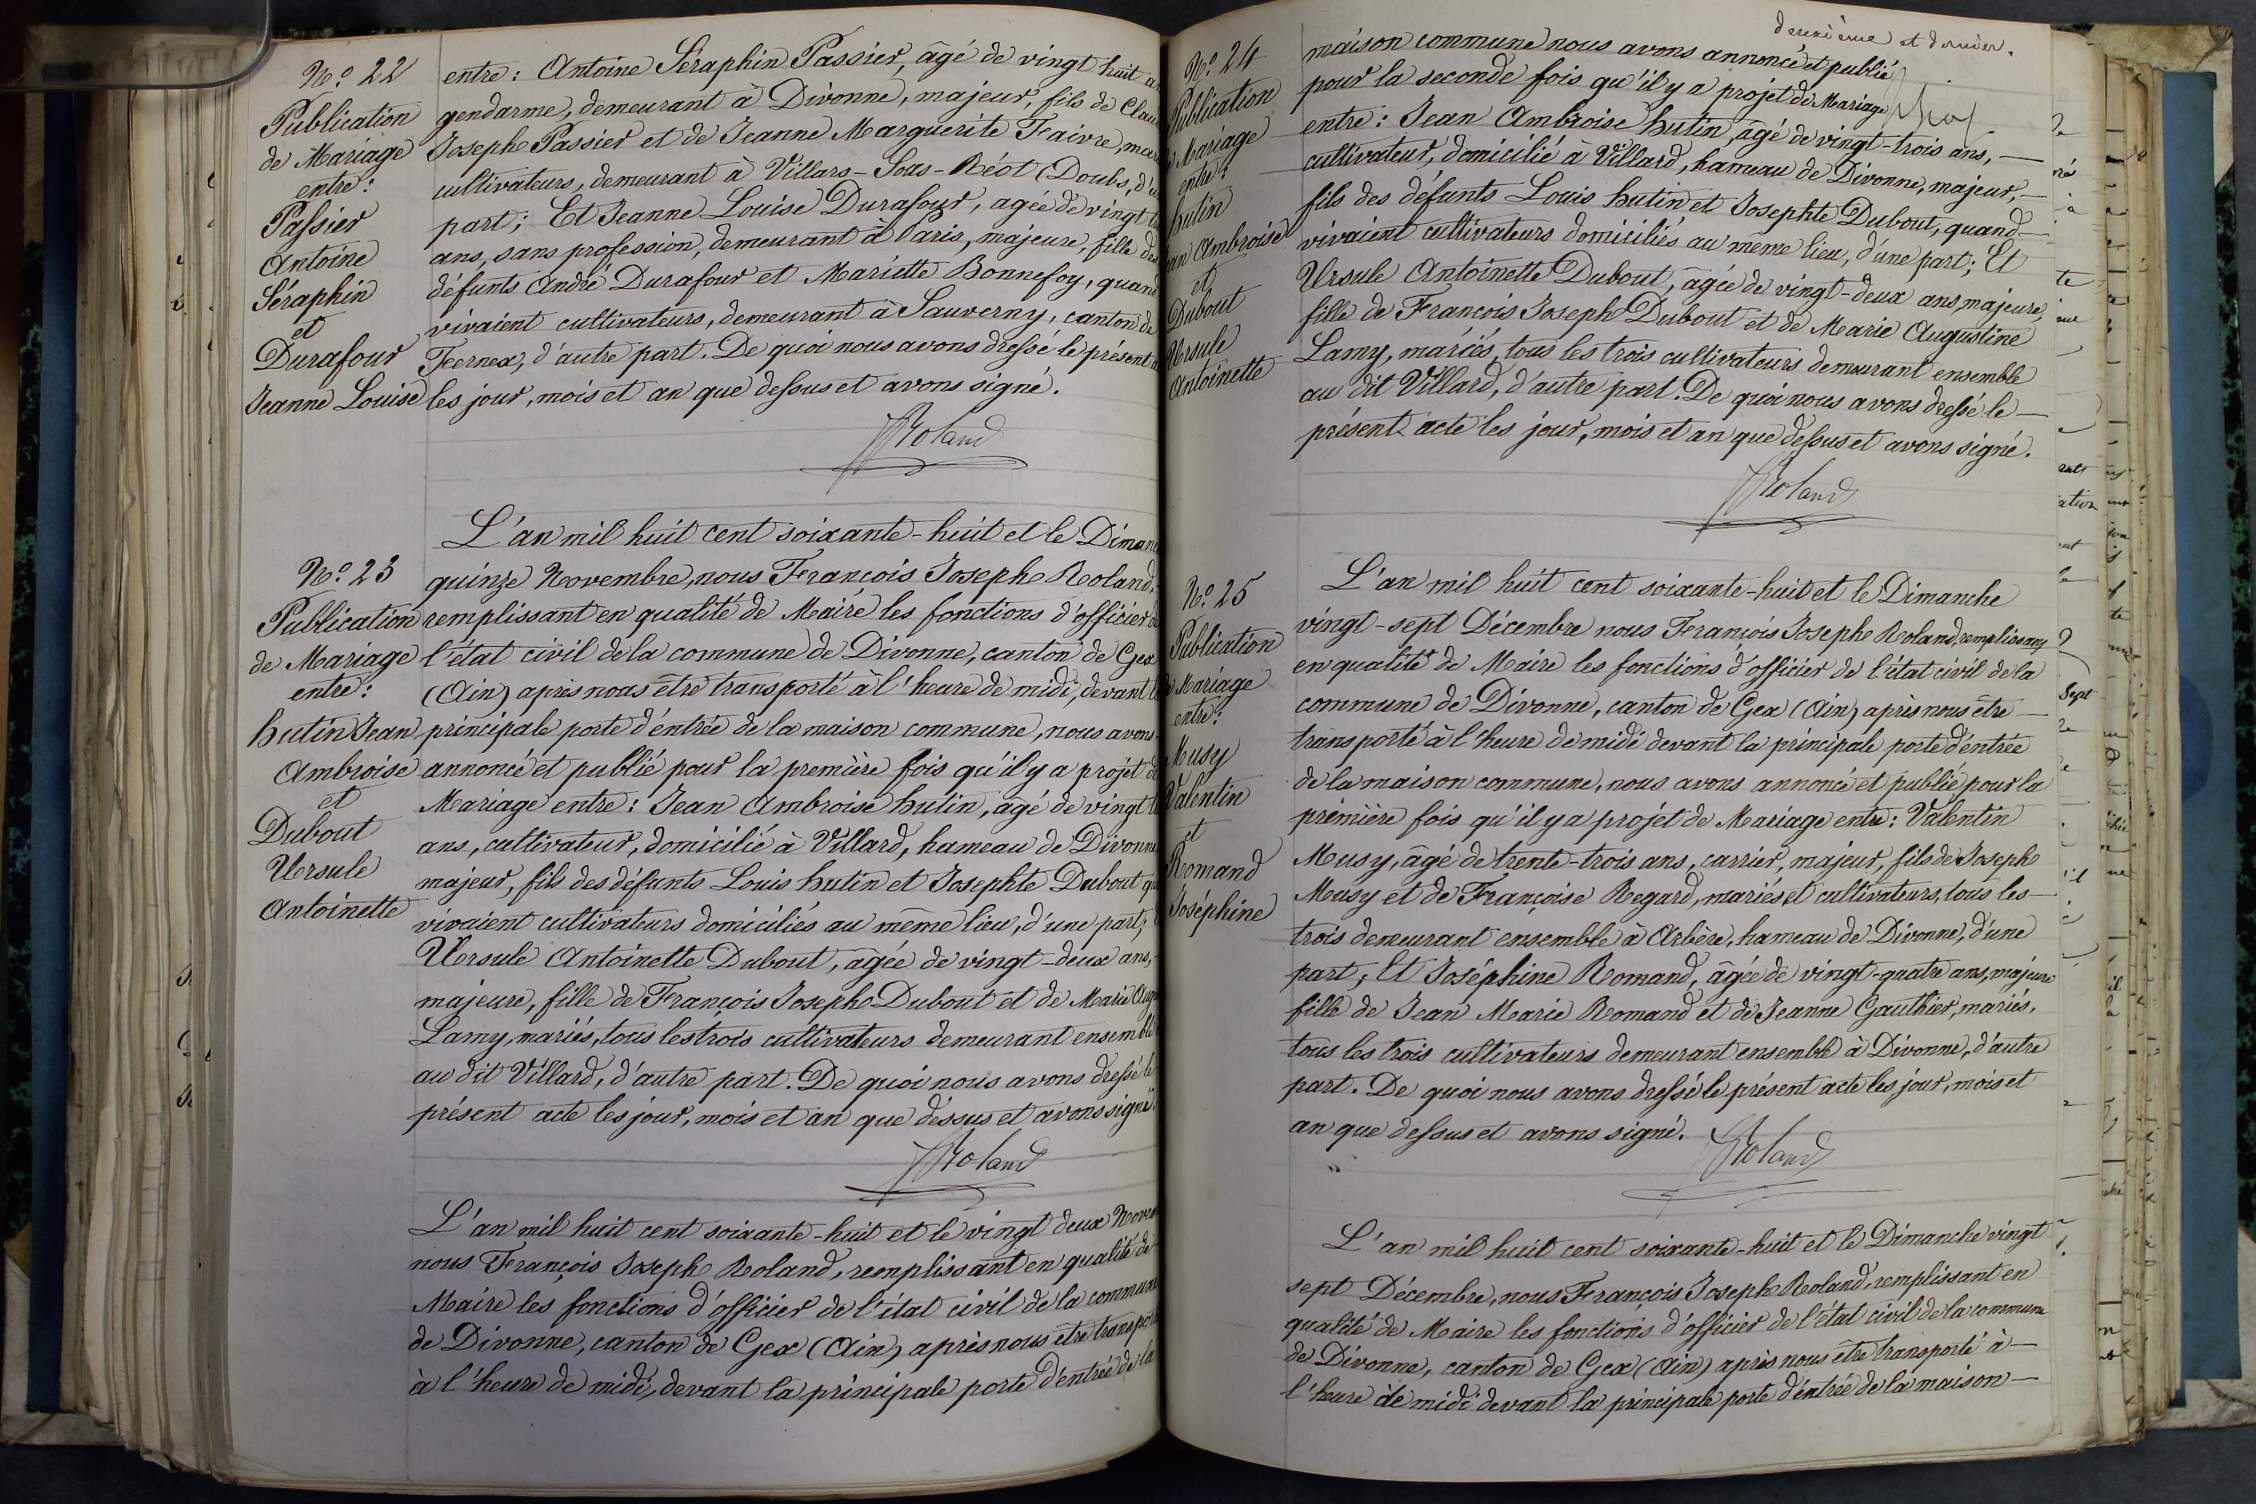 No. 22
Publication
de Mariage
entre:
Passier
Antoine
Séraphin
et
Durafour
Jeanne Louise
entre: Antoine Séraphin Passier, âgé de vingt huit
gendarme, demeurant à Divonne, majeur, fils de
Joseph Passier et de Jeanne Marguerite Faivre,
cultivateurs, demeurant à Villars-Sous- (Doubs,
part; Et Jeanne Louise Durafour, agée de vingt
ans, sans profession, demeurant à Paris, majeure, fille
défunts André Durafour et Mariette Bonnefoy,
vivaient cultivateurs, demeurant à Sauverny, canton de
Fernex, d'autre part. De quoi nous avons dressé le présent
les jour, mois et an que dessus et avons signé.
Roland
No. 23
Publication
de Mariage
entre:
Hutin Jean
Ambroise
et
Dubout
Ursule
Antoinette
L'an mil huit cent soixante-huit et le
quinze Novembre, nous François Joseph Roland,
remplissant en qualité de Maire les fonctions d'officier
l'état civil de la commune de Divonne, canton de Gex
(Ain) après nous être transporté à l'heure de midi, devant
principale porte d'entrée de la maison commune, nous avons
annoncé et publié pour la première fois qu'il y a projet
Mariage entre: Jean Ambroise Hutin, âgé de vingt
ans, cultivateur, domicilié à Villard, hameau de Divonne
majeur, fils des défunts Louis Hutin et Josephte Dubout
vivaient cultivateurs domiciliés au même lieu, d'une part;
Ursule Antoinette Dubout, âgée de vingt-deux ans,
majeure, fille de François Joseph Dubout et de Marie
Lamy, mariés, tous les trois cultivateurs demeurant
au dit Villard, d'autre part. De quoi nous avons dressé le
présent acte les jour, mois et an que dessus et avons signé.
Roland
L'an mil huit cent soixante-huit et le vingt deux
nous François Joseph Roland, remplissant en qualité de
Maire les fonctions d'officier de l'état civil de la commune
de Divonne, canton de Gex (Ain) après nous être
à l'heure de midi, devant la principale porte d'entrée de la
deuxième et dernier.
No. 24
Publication
Mariage
entre:
Hutin
Ambroise
et
Dubout
Ursule
Antoinette
maison commune nous avons annoncé et publié
pour la seconde fois qu'il y a projet de Mariage
entre: Jean Ambroise Hutin, âgé de vingt-trois ans,
cultivateur, domicilié à Villard, hameau de Divonne, majeur,
fils des défunts Louis Hutin et Josephte Dubout, quand
vivaient cultivateurs domiciliés au même lieu, d'une part; Et
Ursule Antoinette Dubout, âgée de vingt-deux ans, majeure,
fille de François Joseph Dubout et de Marie Augustine
Lamy, mariés, tous les trois cultivateurs demeurant ensemble
au dit Villard, d'autre part. De quoi nous avons dressé le
présent acte les jour, mois et an que dessus et avons signé.
Roland
No. 25
Publication
Mariage
entre:
Musy
Valentin
et
Romand
Joséphine
L'an mil huit cent soixante-huit et le Dimanche
vingt-sept Décembre nous François Joseph Roland, remplissant
en qualité de Maire les fonctions d'officier de l'état civil de la
commune de Divonne, canton de Gex (Ain) après nous être
transporté à l'heure de midi devant la principale porte d'entrée
de la maison commune, nous avons annoncé et publié pour la
première fois qu'il y a projet de Mariage entre: Valentin
Musy, âgé de trente-trois ans, carrier, majeur, fils de Joseph
Musy et de Françoise Regard, mariés et cultivateurs, tous les
trois demeurant ensemble à Arbère, hameau de Divonne, d'une
part; Et Joséphine Romand, âgée de vingt-quatre ans, majeure
fille de Jean Marie Romand et de Jeanne Gauthier, mariés,
tous les trois cultivateurs demeurant ensemble à Divonne, d'autre
part. De quoi nous avons dressé le présent acte les jour, mois et
an que dessus et avons signé.
Roland
L'an mil huit cent soixante-huit et le Dimanche vingt
sept Décembre, nous François Joseph Roland, remplissant en
qualité de Maire les fonctions d'officier de l'état civil de la commune
de Divonne, canton de Gex (Ain) après nous être transporté à
l'heure de midi devant la principale porte d'entrée de la maison